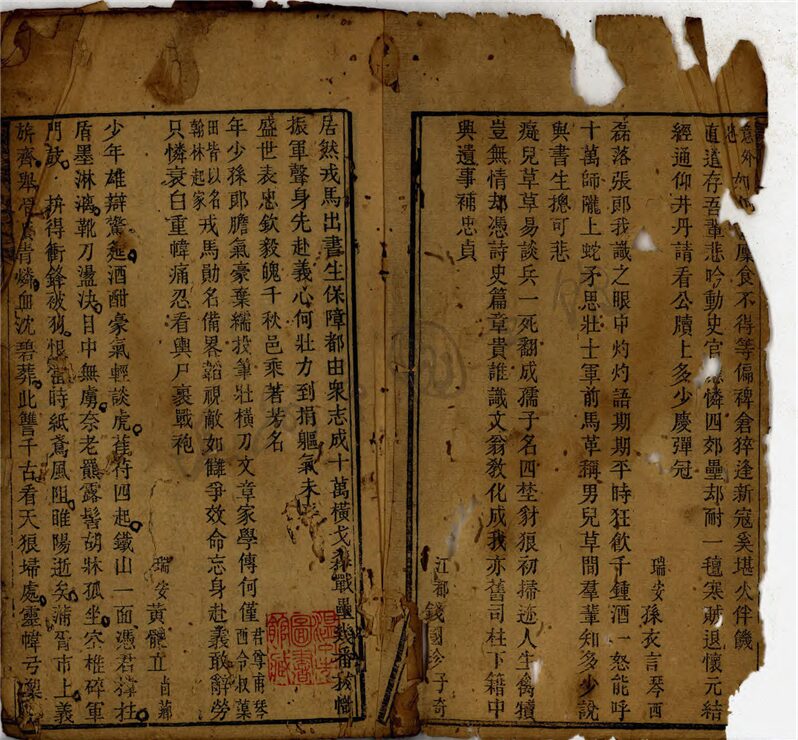 意外如糜食不得等偏碑倉猝逢新寇奚堪火伴饑
直道存吾輩悲吟動史官憐四郊壘却耐一氈寒賊退懷元結
經通仰井丹請看公牘上多少慶彈冠
瑞安孫衣言琴西
磊落張郎我識之眼中灼灼語期期平時狂飲千鍾酒一怒能呼
十萬師隴上蛇矛思壯士軍前馬革稱男兒草間羣輩知多少說
與書生摠可悲
江都錢國珍子奇
癡兒草草易談兵一死翻成孺子名四埜豺狼初掃迹人生禽犢
豈無情却憑詩史篇章貴誰識文翁敎化成我亦舊司柱下籍中
興遺事補忠貞
居然戎馬出書生保障都由衆志成十萬橫戈飛戰壘幾番拔幟
振軍聲身先赴義心何壯力到捐軀氣未
盛世表忠欽毅魄千秋邑乘著芳名
年少孫郎膽氣豪棄繻投筆壯橫刀文章家學傳何僅君尊甫琴酉令叔蕖
田皆以名翰林起家戎馬勛名備畧韜視敵如讎爭效命忘身赴義敢辭勞
只憐衰白重幃痛忍看輿尸裹戰袍
瑞安黃體立卣薌
少年雄辯驚筵酒酣豪氣輕談虎萑苻四起鐵山一面憑君撐拄
盾墨淋漓靴刀盪決目中無虜奈老羆露髻胡牀孤坐空椎碎軍
門鼓 拚得衝鋒被狥恨當時紙鳶風阻睢陽逝矣蒲胥市上義
旂齊舉骨青燐血沈碧葬此讐千古看天狼埽處靈幃弓
温州市圖書館藏